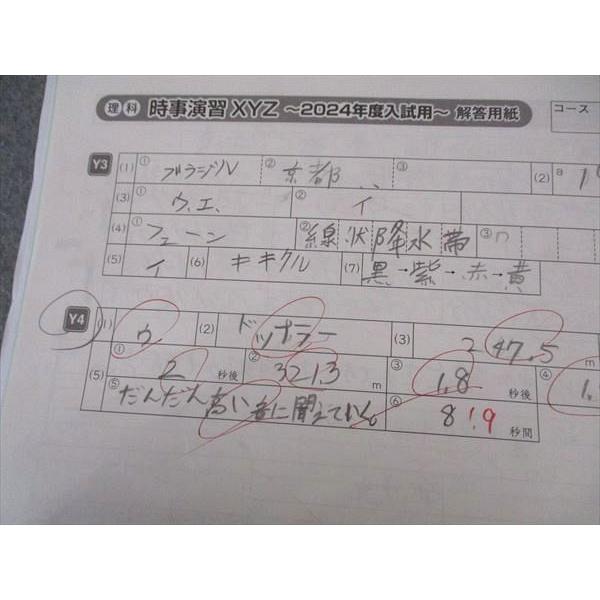 理科 時事演習XYZ ～2024年度入試用～ 解答用紙 コース
Y3 (1) ① ブラジル ② 京都 ③ (2) a 1
(3) ① ウ.エ. ② イ
(4) ① フェーン ② 線状降水帯 ③
(5) イ (6) キキクル (7) 黒→紫→赤→黄
Y4 (1) ウ (2) ドップラー (3) 347.5 m
(5) ① 2 秒後 ② 321.3 m ③ 1.8 秒後 ④ 1.
⑤ だんだん高い音に聞えていく。 ⑥ 8 1.9 秒間